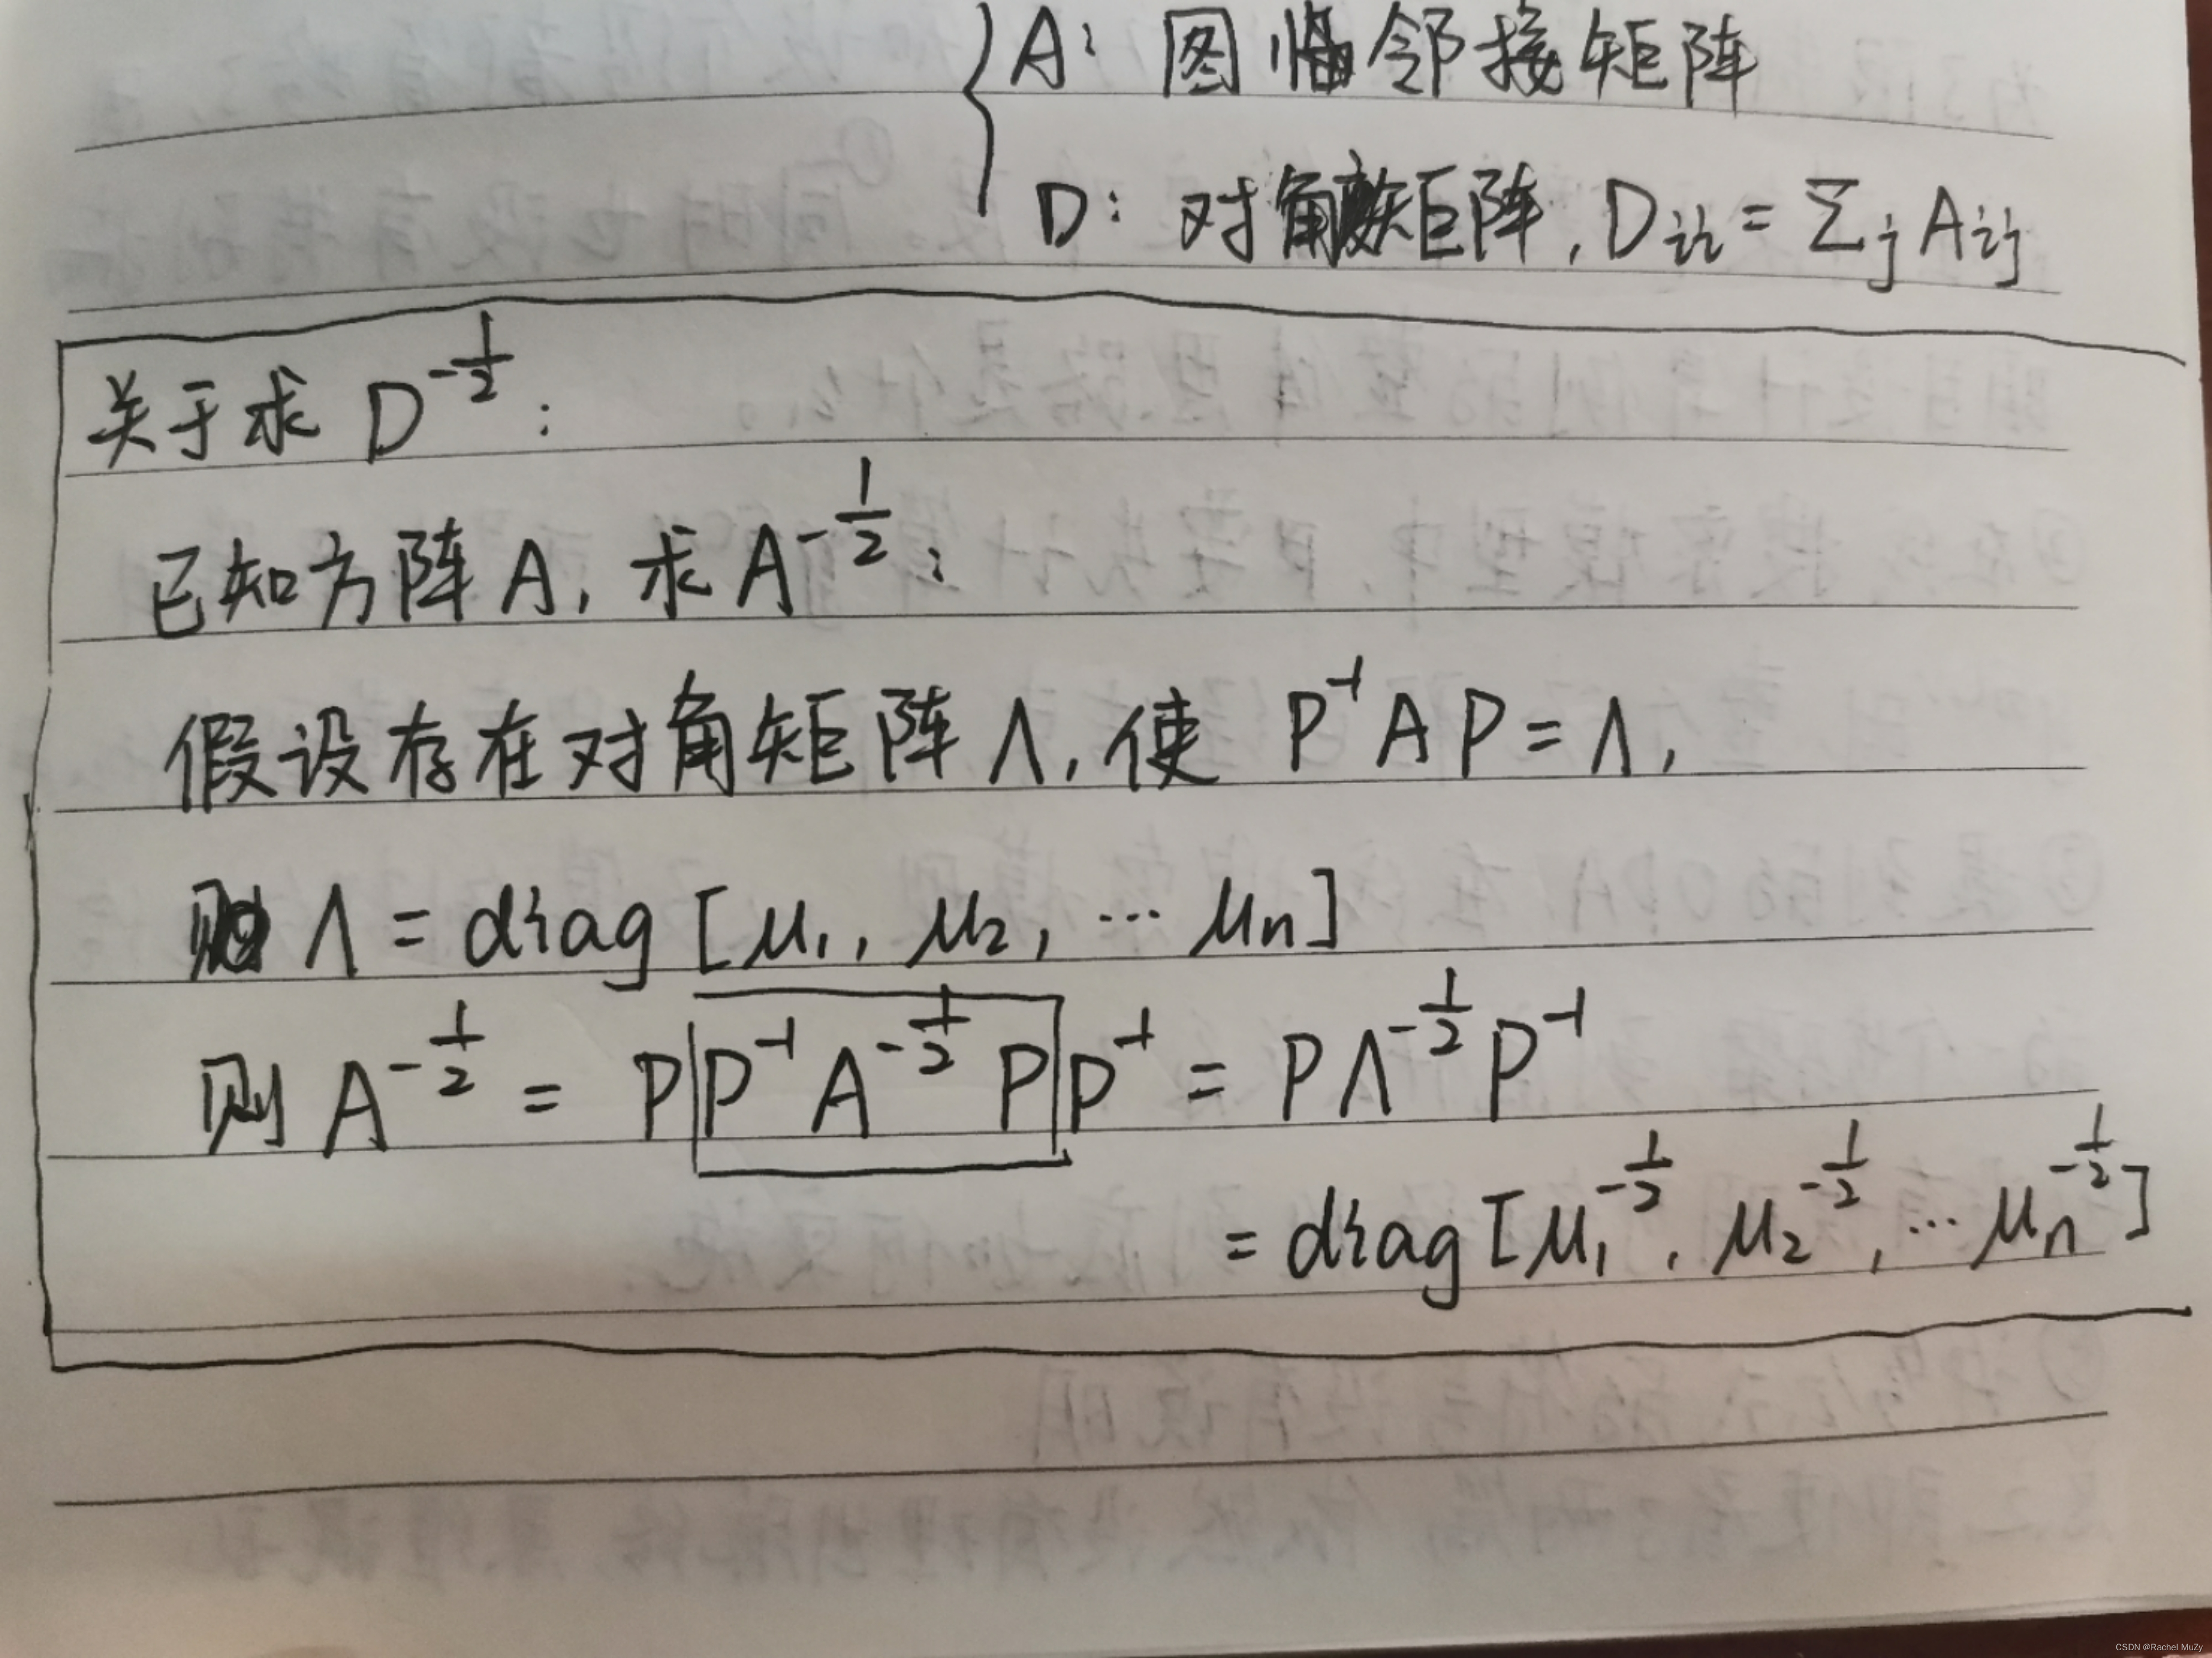 A: 图 邻接矩阵
D: 对角矩阵, Dii = Σj Aij
关于求 D^{-1/2}:
已知方阵 A, 求 A^{-1/2}:
假设存在对角矩阵 Λ, 使 P^{-1} A P = Λ,
则 Λ = diag [μ1, μ2, … μn]
则 A^{-1/2} = P P^{-1} A^{-1/2} P P^{-1} = P Λ^{-1/2} P^{-1}
= diag [μ1^{-1/2}, μ2^{-1/2}, … μn^{-1/2}]
CSDN @Rachel MuZy